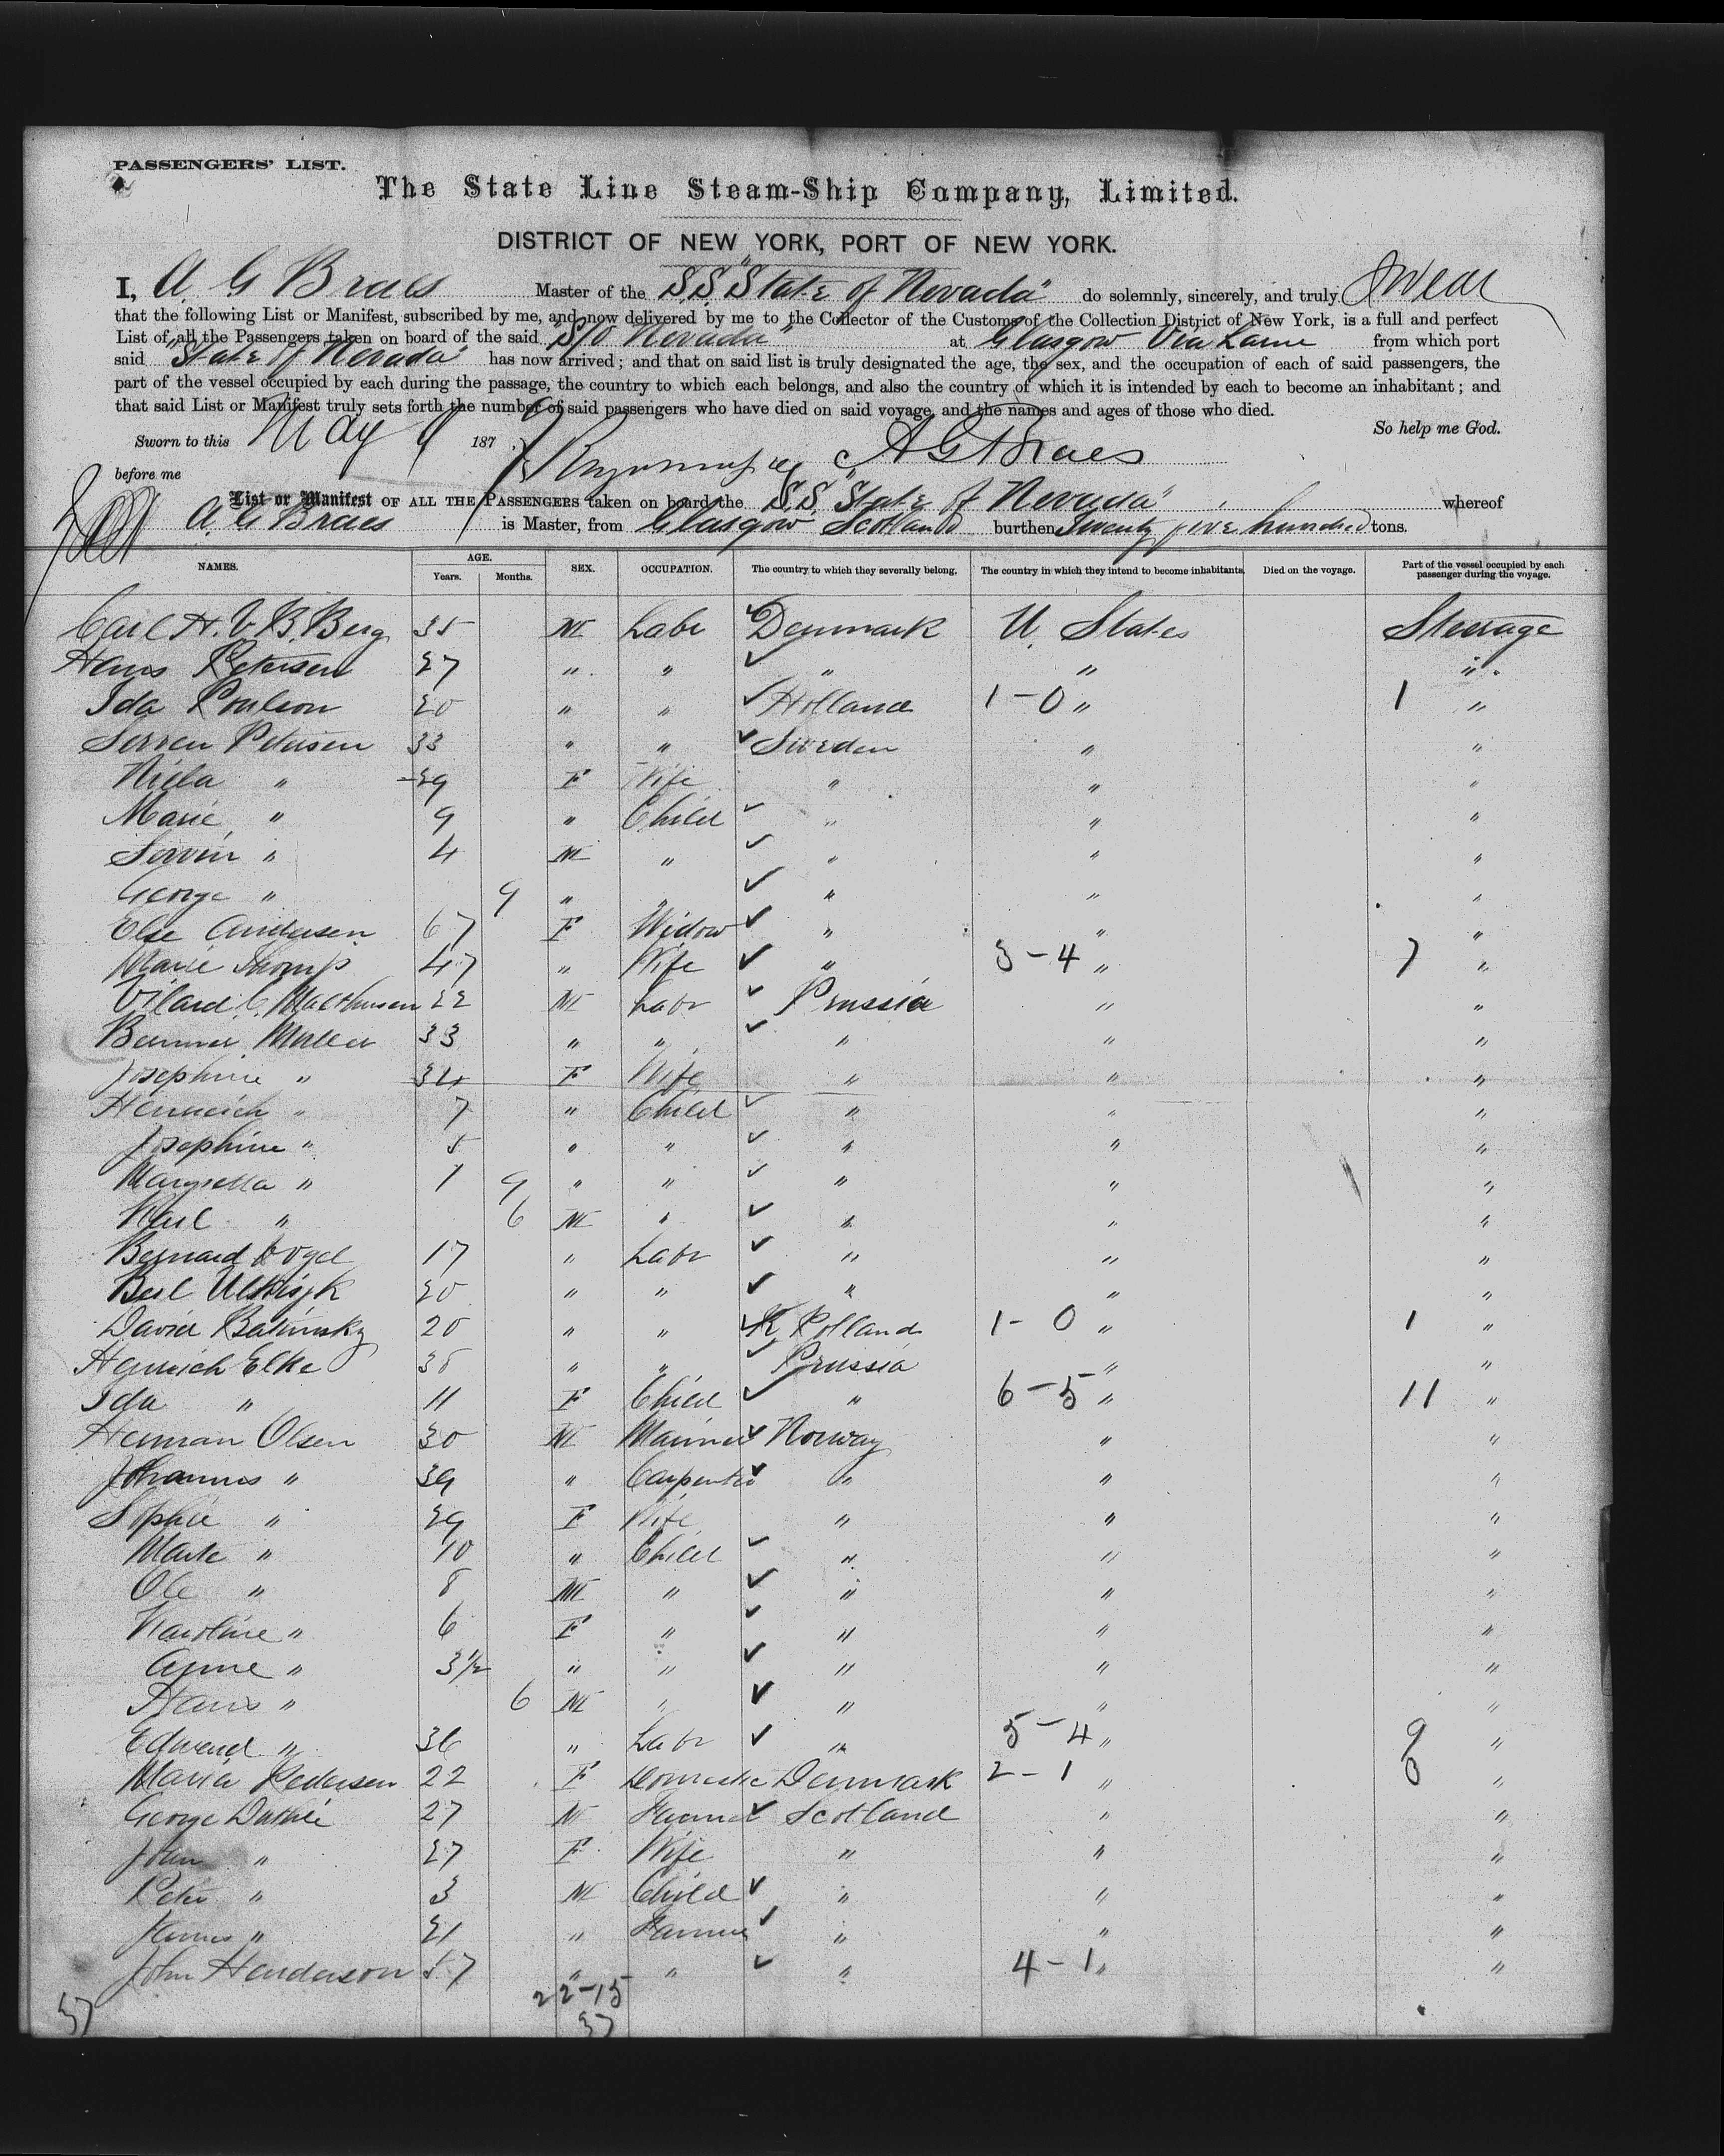 PASSENGERS' LIST.
The State Line Steam-Ship Company, Limited.
DISTRICT OF NEW YORK, PORT OF NEW YORK.
I, A. G. Braes Master of the S.S. "State of Nevada" do solemnly, sincerely, and truly Swear
that the following List or Manifest, subscribed by me, and now delivered by me to the Collector of the Customs of the Collection District of New York, is a full and perfect
List of all the Passengers taken on board of the said "S/o Nevada" at Glasgow Via Larne from which port
said "State of Nevada" has now arrived; and that on said list is truly designated the age, the sex, and the occupation of each of said passengers, the
part of the vessel occupied by each during the passage, the country to which each belongs, and also the country of which it is intended by each to become an inhabitant; and
that said List or Manifest truly sets forth the number of said passengers who have died on said voyage, and the names and ages of those who died.
So help me God.
Sworn to this May 9 187
A G Braes
before me
List or Manifest OF ALL THE PASSENGERS taken on board the S.S. "State of Nevada" whereof
A. G. Braes is Master, from Glasgow Scotland burthen Twenty five hundred tons.
NAMES. AGE. Years. Months. SEX. OCCUPATION. The country to which they severally belong. The country in which they intend to become inhabitants. Died on the voyage. Part of the vessel occupied by each passenger during the voyage.
Carl H. V. B. Berg 35 M Labr Denmark U. States Steerage
Hans Petersen 27 " " " " "
Ida Poulson 20 " " Holland 1-0 " 1 "
Sorren Petersen 33 " " Sweden " "
" 29 F Wife " " "
Marie " 9 " Child " " "
" 4 M " " " "
George " 9 " " " " "
Else Andersen 67 F Widow " " "
Marie 47 " Wife " 3-4 " 7 "
22 M Labr Prussia " "
Muller 33 " " " " "
Josephine " 34 F Wife " " "
Heinrich " 7 " Child " " "
Josephine " 5 " " " " "
Margretta " 1 9 " " " " "
Karl " 6 M " " " "
Bernard Vogel 17 " Labr " " "
20 " " " " "
David Batinsky 20 " " R. Polland 1-0 " 1 "
Heinrich Elke 38 " " Prussia " "
Ida " 11 F Child " 6-5 " 11 "
Herman Olsen 30 M Mariner Norway " "
Johannes " 39 " Carpenter " " "
Sophie " 29 F Wife " " "
" 10 " Child " " "
Ole " 8 M " " " "
Karoline " 6 F " " " "
Anne " 3½ " " " " "
Hans " 6 M " " " "
Edward " 36 " Labr " 5-4 " 9 "
Maria Pedersen 22 F Domestic Denmark 2-1 " "
George Duthie 27 M Farmer Scotland " "
" 27 F Wife " " "
Peter " 3 M Child " " "
James " 21 " Farmer " " "
John Henderson 57 " " " 4-1 " "
22-15
37 37